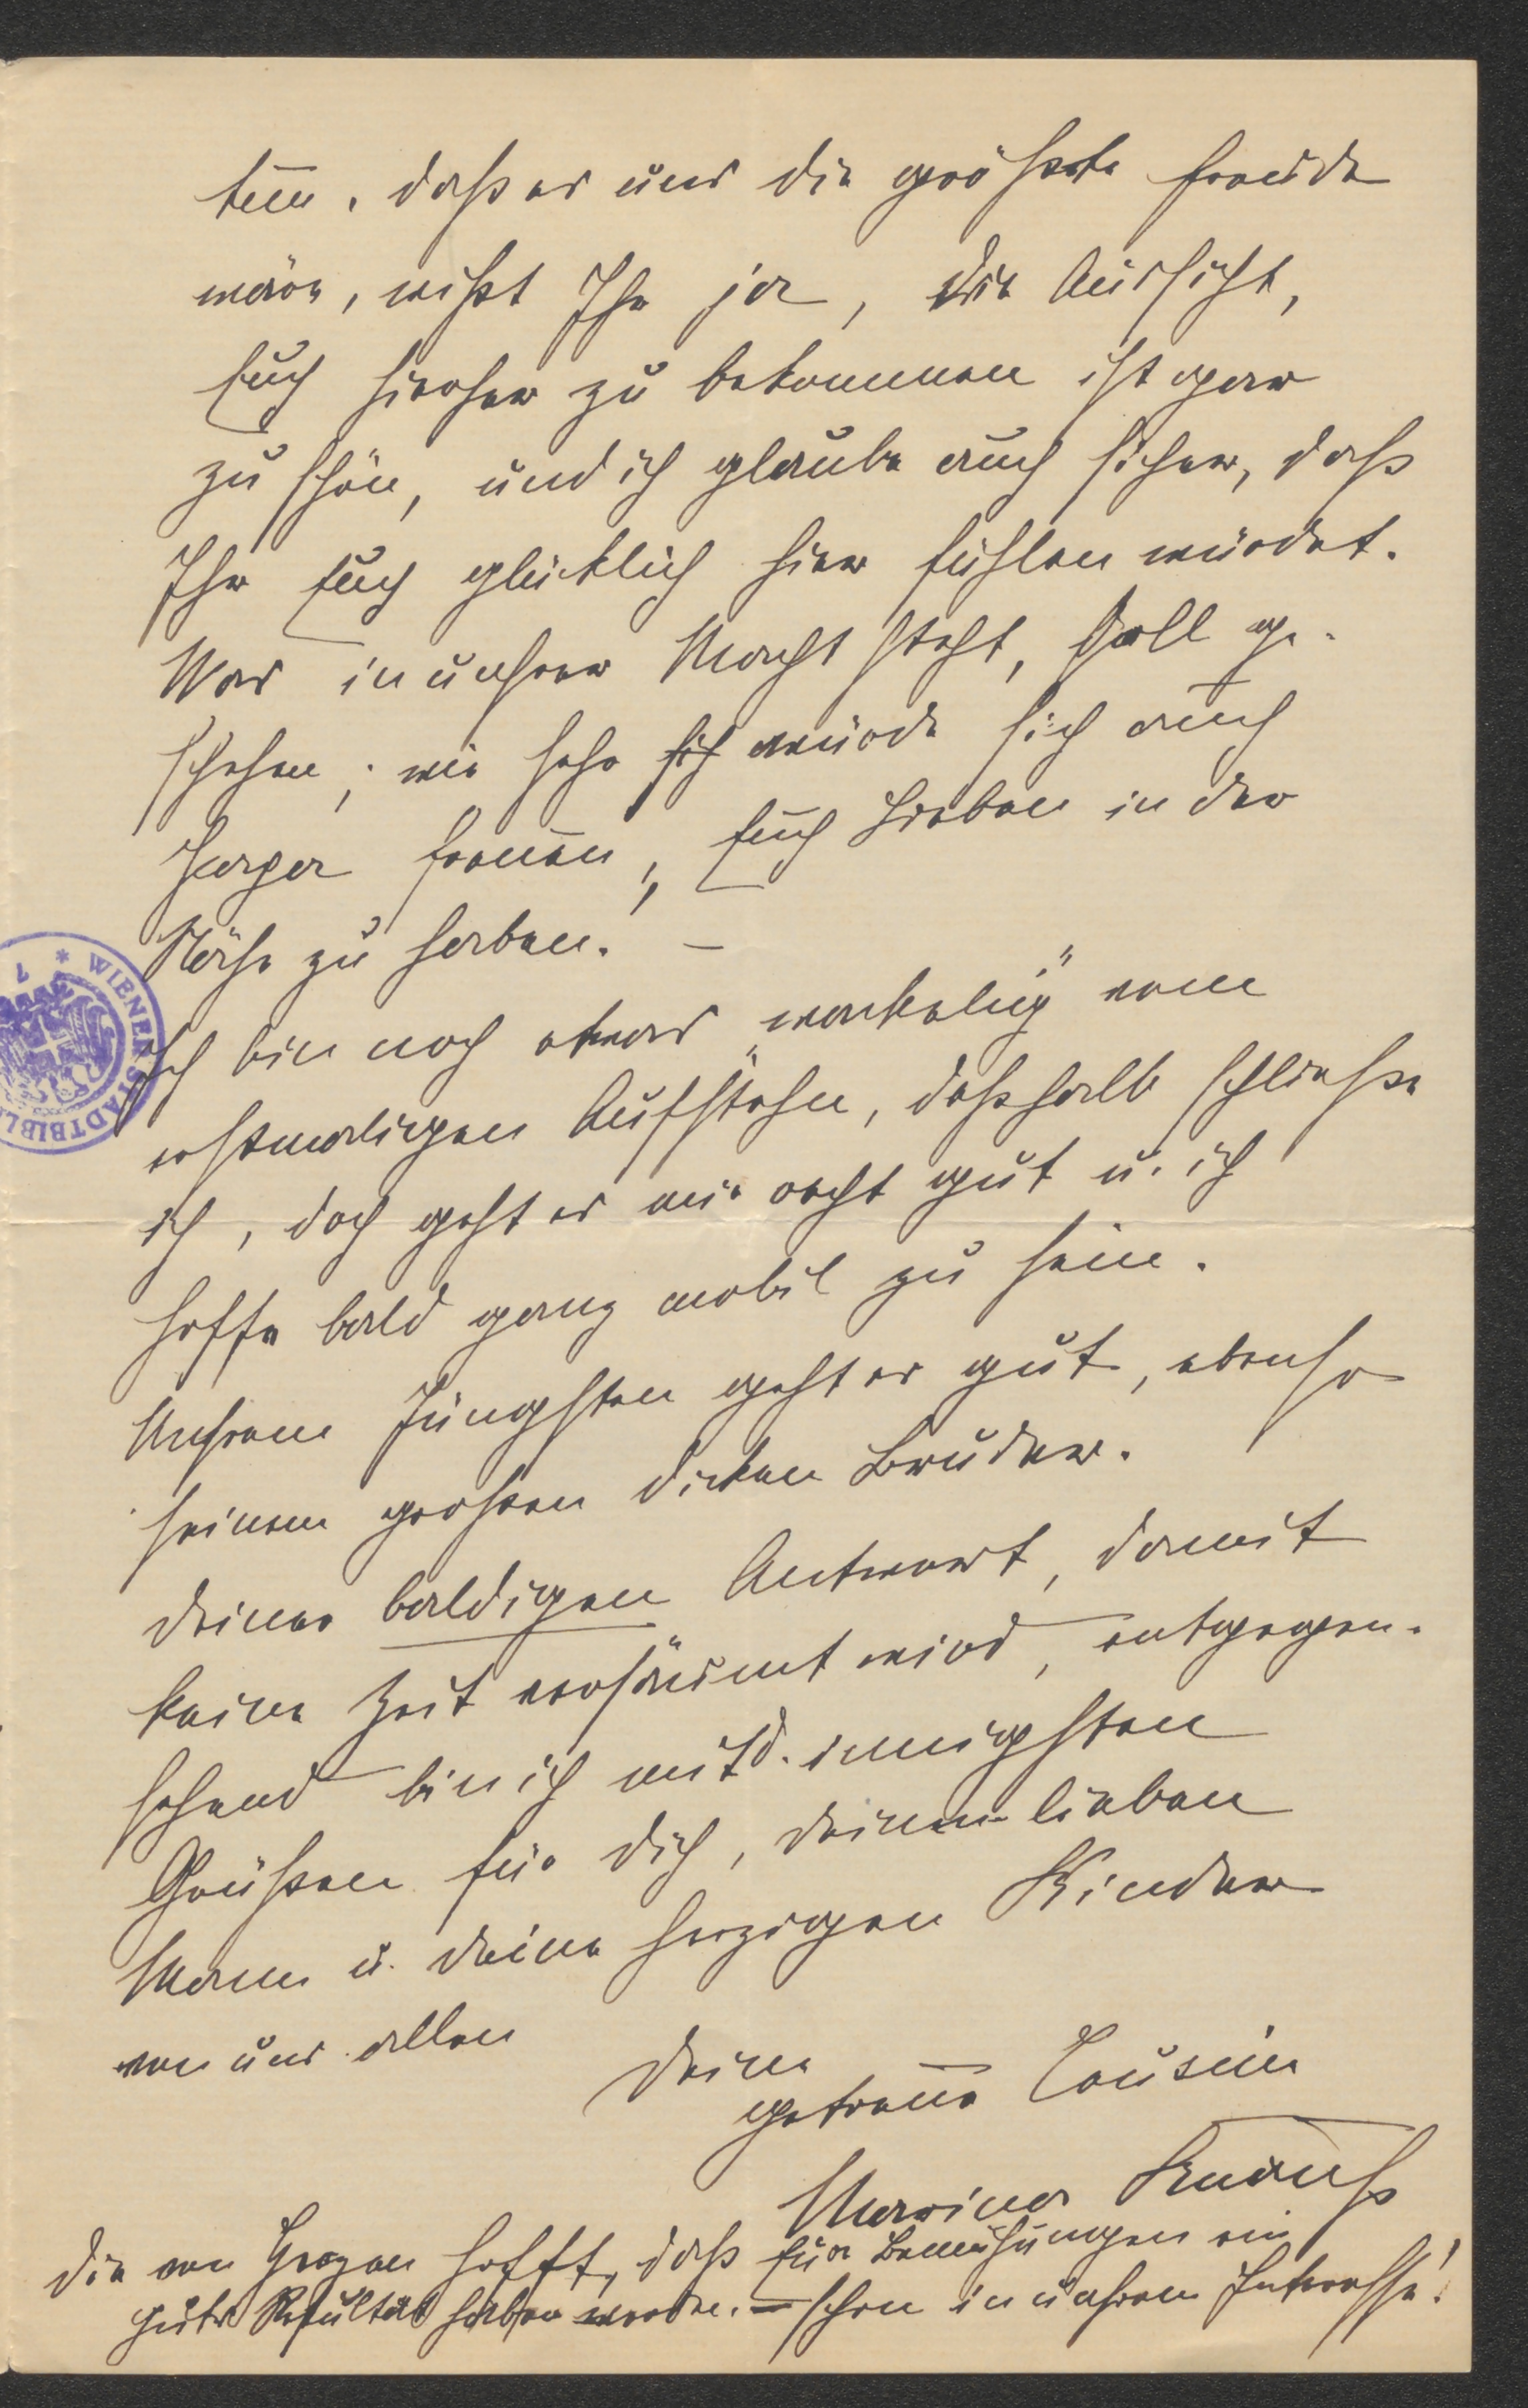 tun. daß es uns die größte Freude
wäre, wißt Ihr ja, die Aussicht,
Euch hierher zu bekommen ist gar
zu schön, und ich glaube auch sicher, daß
Ihr Euch glücklich hier fühlen würdet.
Was in unsrer Macht steht, soll ge-
schehen; wie sehr sich würde sich auch
freuen, Euch Lieben in der
Nähe zu haben. –
Ich bin noch etwas „wackelig" vom
erstmaligen Aufstehn, deßhalb schließe
ich, doch geht es mir recht gut u. ich
hoffe bald ganz mobil zu sein.
Unsrem Jüngsten geht es gut, ebenso
seinem großen dicken Bruder.
Deiner baldigen Antwort, damit
keine Zeit versäumt wird, entgegen-
sehend bin ich mit d. innigsten
Grüßen für Dich, Deinen lieben
Mann u. Deine herzigen Kinder
von uns allen
Deine
getreue Cousine
Marina
hofft, daß Eure Bemühungen ein
gutes Resultat haben werden. – schon in unsrem Interesse!
WIENER STADTBIBL